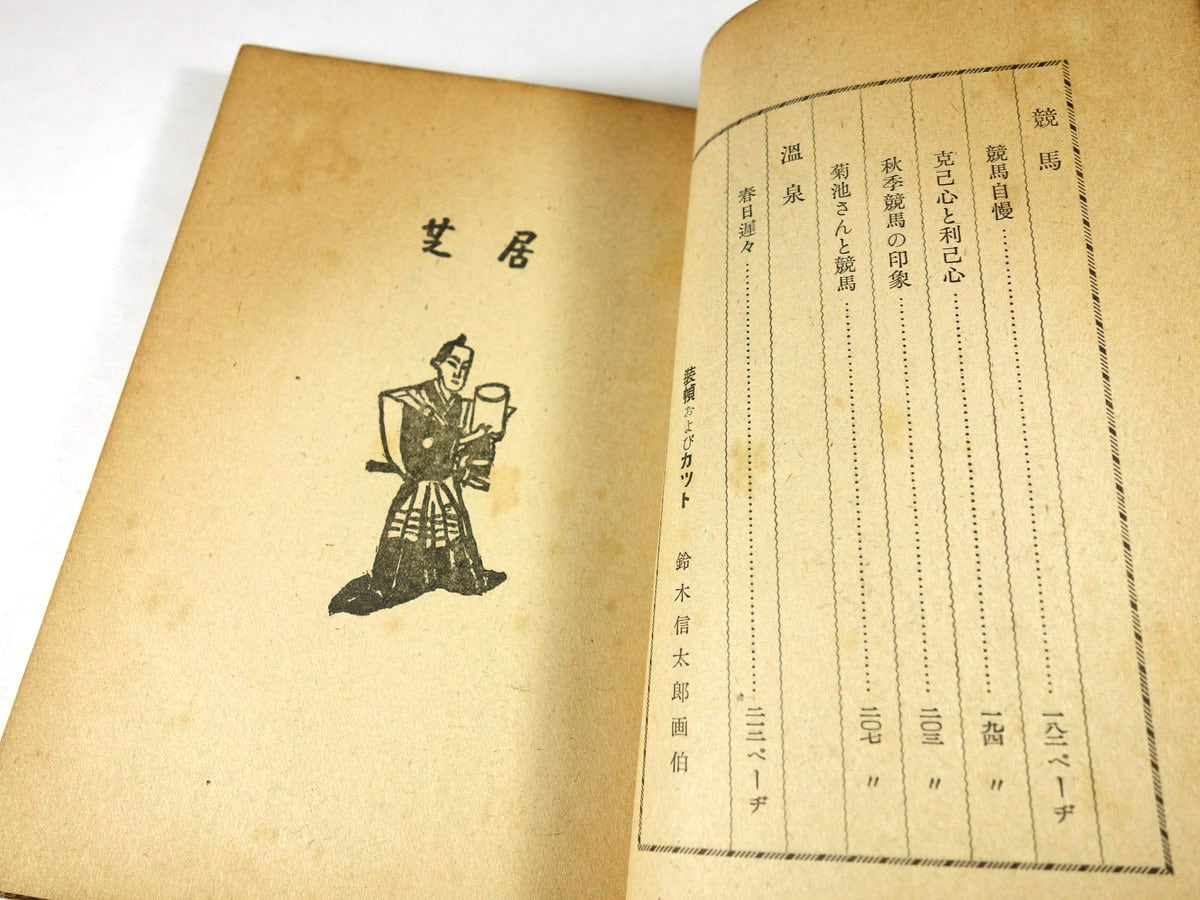 競馬
競馬自慢……………一八二ペーヂ
克己心と利己心……………一九四 〃
秋季競馬の印象……………二〇三 〃
菊池さんと競馬……………二〇七 〃
溫泉
春日遲々……………二一二ペーヂ
装幀およびカット 鈴木信太郎画伯
芝居